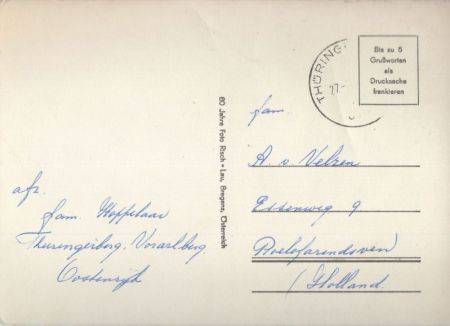 afz.
fam. Hoppelaar
Thuringerberg. Vorarlberg.
Oostenrijk
80 Jahre Foto Risch-Lau, Bregenz, Österreich
THÜRING
27.
Bis zu 5
Grußworten
als
Drucksache
frankieren
fam.
A. v. Velzen
Essenweg 9
Roelofarendsveen
(Holland.